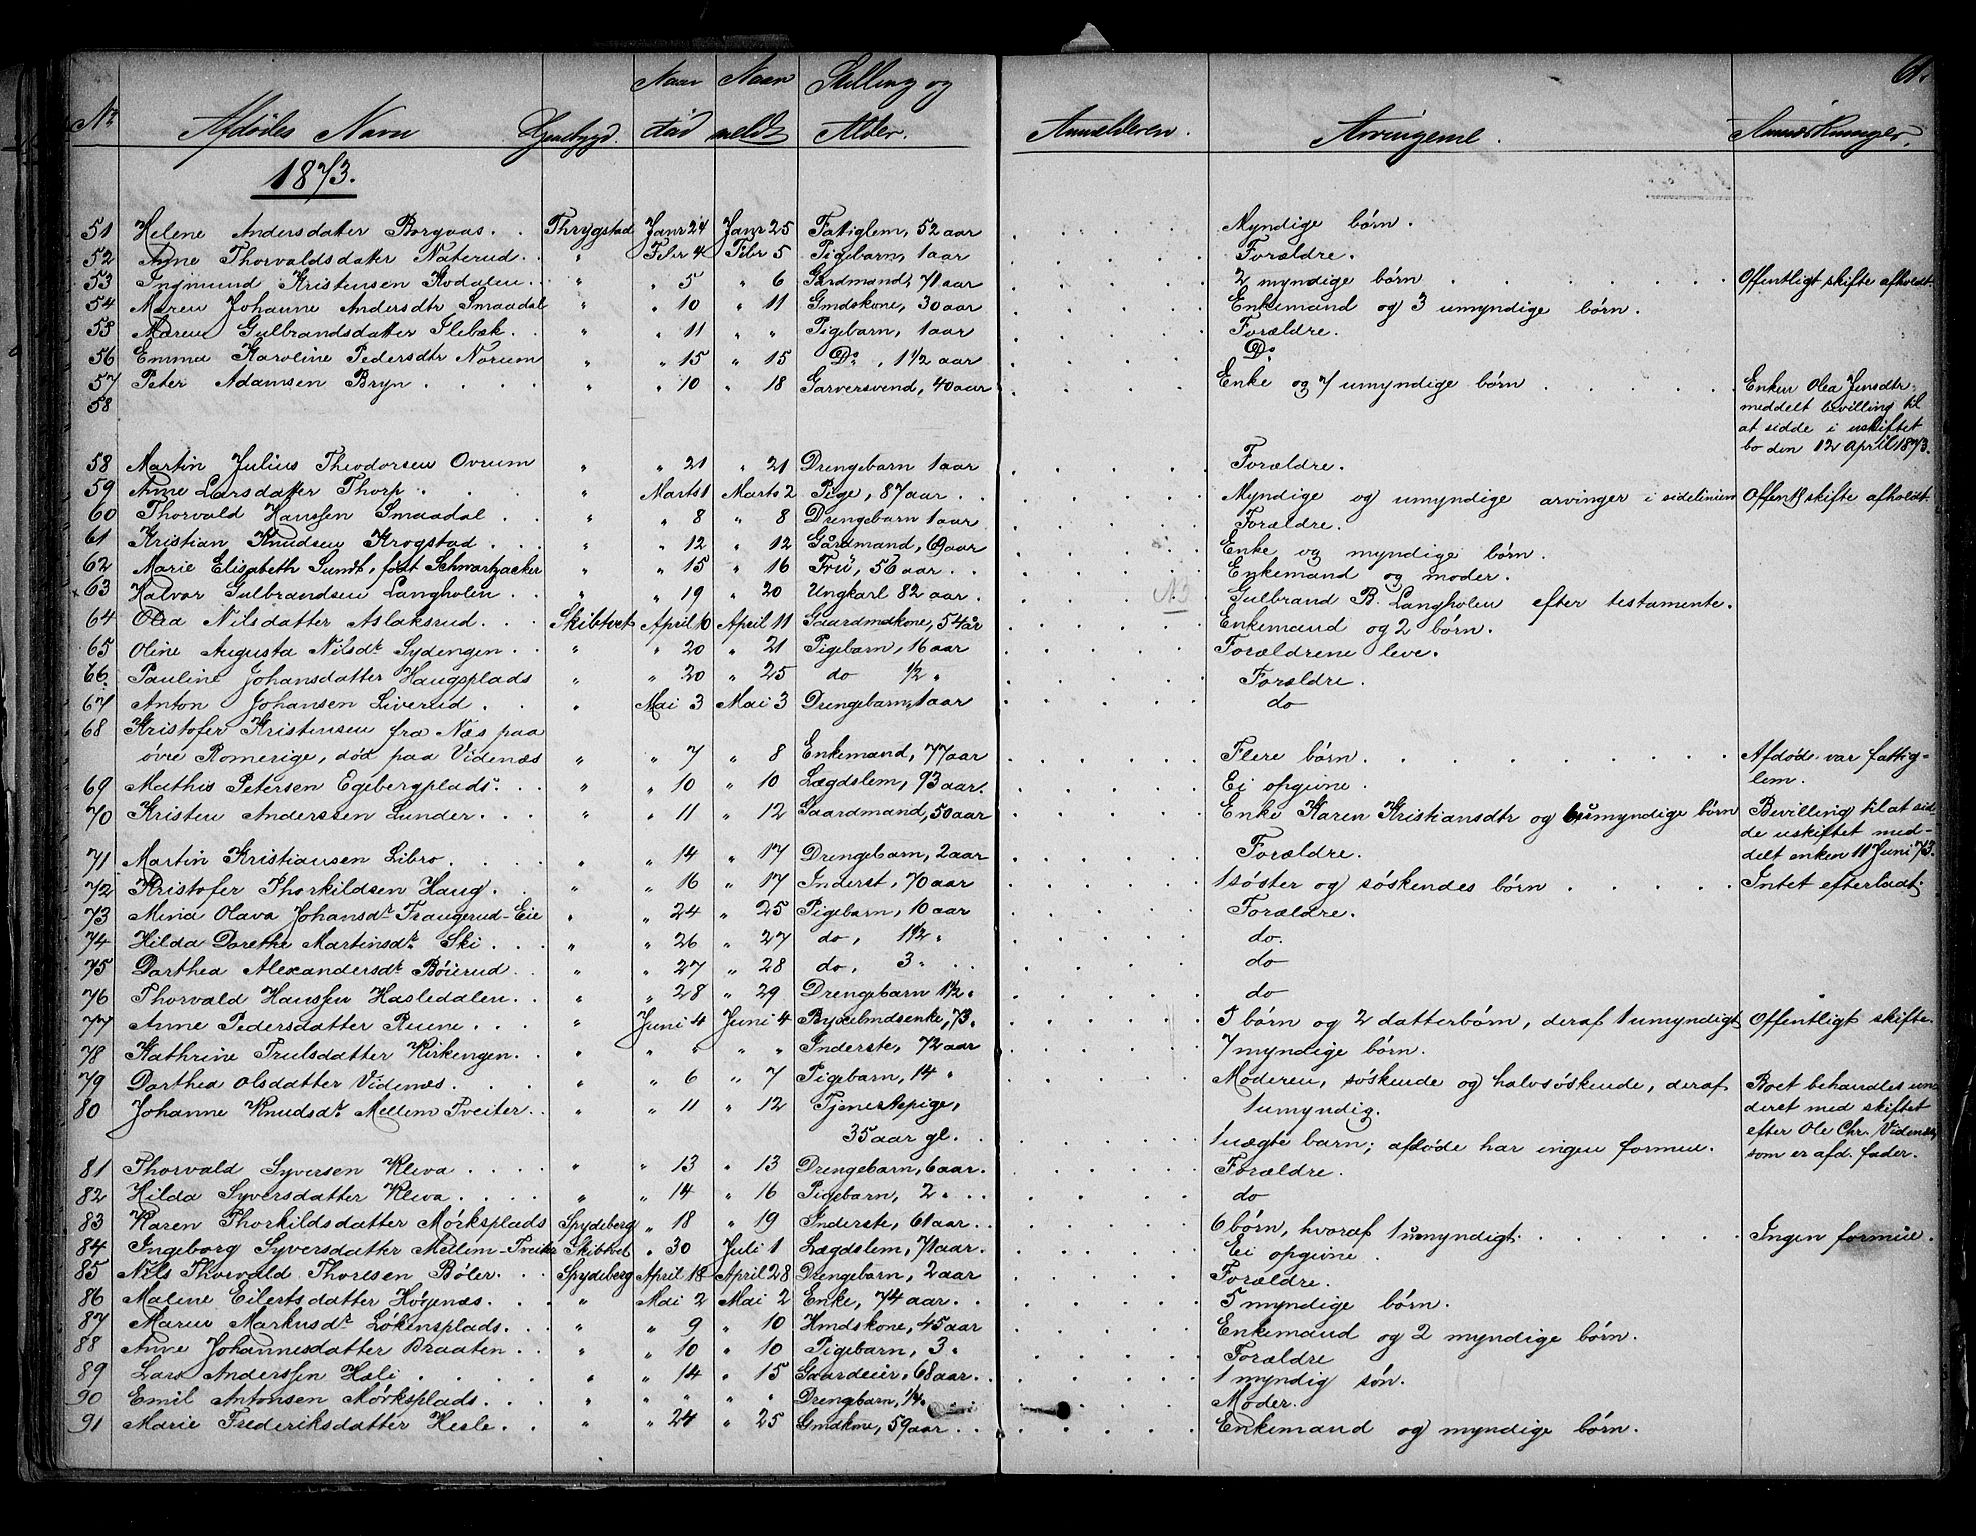 61.
Nr Afdödes Navn Thinebygd. Naar död Naar meldt Stilling og Alder. Anmelderen. Arvingerne. Anmærkninger.
1873.
51 Helene Andersdatter Borgaas. Thrygstad Janr 24 Janr 25 Fatiglem, 52 aar Myndige børn.
52 Anne Thorvaldsdater Naterud. " Febr 4 Febr 5 Pigebarn, 1 aar Forældre.
53 Ingmund Kristensen Kodalen. " " 5 " 6 Gardmand, 71 aar 2 myndige børn Offentligt skifte afholdt.
54 Maren Johanne Andersdtr Smaadal " " 10 " 11 Gmdskone, 30 aar Enkemand og 3 umyndige børn.
55 Maren Gulbrandsdatter Ilebæk. " " 11 " " Pigebarn, 1 aar Forældre.
56 Emma Karoline Pedersdtr Norum " " 15 " 15 Do, 1 1/2 aar Do
57 Peter Adamsen Bryn " " 10 " 18 Garversvend, 40 aar Enke og 7 umyndige børn Enken Olea Jensdtr.
58 meddelt bevilling til
at sidde i uskiftet
bo den 12 April 1873.
58 Martin Julius Theodorsen Ovrum " " 21 " 21 Drengebarn 1 aar Forældre.
59 Anne Larsdatter Thorp. " Marts 1 Marts 2 Pige, 87 aar Myndige og umyndige arvinger i sidelinien Offentl skifte afholdt.
60 Thorvald Hanssen Smaadal " " 8 " 8 Drengebarn 1 aar Forældre.
61 Kristian Knudsen Krogstad " " 12 " 12 Gårdmand, 69 aar Enke og myndige børn.
62 Marie Elisabeth Sundt, født Schwartzacker " " 15 " 16 Frü, 56 aar. Enkemand og moder.
x 63 Halvor Gulbrandsen Langholen " " 19 " 20 Ungkarl 82 aar NB Gulbrand B. Langholen efter testamente.
64 Olea Nilsdatter Aslaksrud. Skibtvet April 10 April 11 Gaardmskone, 54 år Enkemand og 2 børn.
65 Oline Augusta Nilsdr Sydengen " " 20 " 21 Pigebarn, 16 aar Forældrene leve.
66. Pauline Johansdatter Haugsplads " " 20 " 25 do 1/2 " Forældre.
67 Anton Johansen Liverud. " Mai 3 Mai 3 Drengebarn, 1 aar do
68 Kristofer Kristensen fra Næs paa
øvre Romerige, död paa Videnæs " " 7 " 8 Enkemand, 77 aar Flere børn. Afdöde var fattig-
lem.
69 Mathis Petersen Egebergplads. " " 10 " 10 Lægdslem, 93 aar. Ei opgivne.
70 Kristen Anderssen Lunder. " " 11 " 12 Gaardmand, 50 aar Enke Karen Kristiansdtr og 6 umyndige børn Bevilling til at sid-
de uskiftet med-
71 Martin Kristiansen Libro. " " 14 " 17 Drengebarn, 2 aar Forældre. delt enken 11 Juni 73.
72 Kristofer Thorkildsen Haug. " " 16 " 17 Inderst, 70 aar 1 söster og söskendes børn Intet efterladt.
73 Mina Olava Johansdr Traugerud-Eie " " 24 " 25 Pigebarn, 10 aar Forældre.
74 Hilda Dorethe Martinsdr Ski " " 26 " 27 do, 1 1/2 " do.
75 Darthea Alexandersdr Böierud. " " 27 " 28 do, 3 " do
76 Thorvald Hanssen Hasledalen. " " 28 " 29 Drengebarn 1 1/2 " do
77 Anne Pedersdatter Reene. " Juni 4 Juni 4 Bydelmdsenke, 73. 5 børn og 2 datterbørn, deraf 1 umyndigt Offentligt skifte.
78 Kathrine Trulsdatter Kirkengen. " " " " " Inderste, 72 aar 7 myndige børn.
79 Darthea Olsdatter Videnæs. " " 6 " 7 Pigebarn, 14 " Moderen, söskende og halvsöskende, deraf Boet behandles un-
80 Johanne Knudsdr Mellem Tveiter. " " 11 " 12 Tjenestepige, 1 umyndig. deret med skiftet
35 aar gl. 1 uægte barn; afdöde har ingen formue. efter Ole Chr. Videnæs,
81 Thorvald Syversen Kleva " " 13 " 13 Drengebarn, 6 aar. Forældre. som er afd. fader.
82 Hilda Syversdatter Kleva. " " 14 " 16 Pigebarn, 2 " do
83 Karen Thorkildsdatter Mörksplads Spydeberg " 18 " 19 Inderste, 61 aar 6 børn, hvoraf 1 umyndigt. Ingen formue.
84 Ingeborg Syversdatter Mellem-Tveiter Skibtvet " 30 Juli 1 Lægdslem, 71 aar. Ei opgivne.
85 Nils Thorvald Thorlsen Böler. Spydeberg April 18 April 28 Drengebarn, 2 aar Forældre.
86 Malene Eilertsdatter Högnæs. " Mai 2 Mai 2 Enke, 74 aar. 5 myndige børn.
87 Maren Markusdr Lökensplads. " " 9 " 10 Hmdskone, 45 aar Enkemand og 2 myndige børn.
88 Anne Johannesdatter Braaten " " 10 " 10 Pigebarn, 3 " Forældre
89 Lars Anderssen Hali " " 14 " 15 Gaardeier, 68 aar. 1 myndig sön.
90 Emil Antonsen Mörksplads. " " " " " Drengbarn, 1/4 " Moder.
91 Marie Frederiksdatter Hesle. " " 24 " 25 Gmdkone, 59 aar Enkemand og myndige børn.